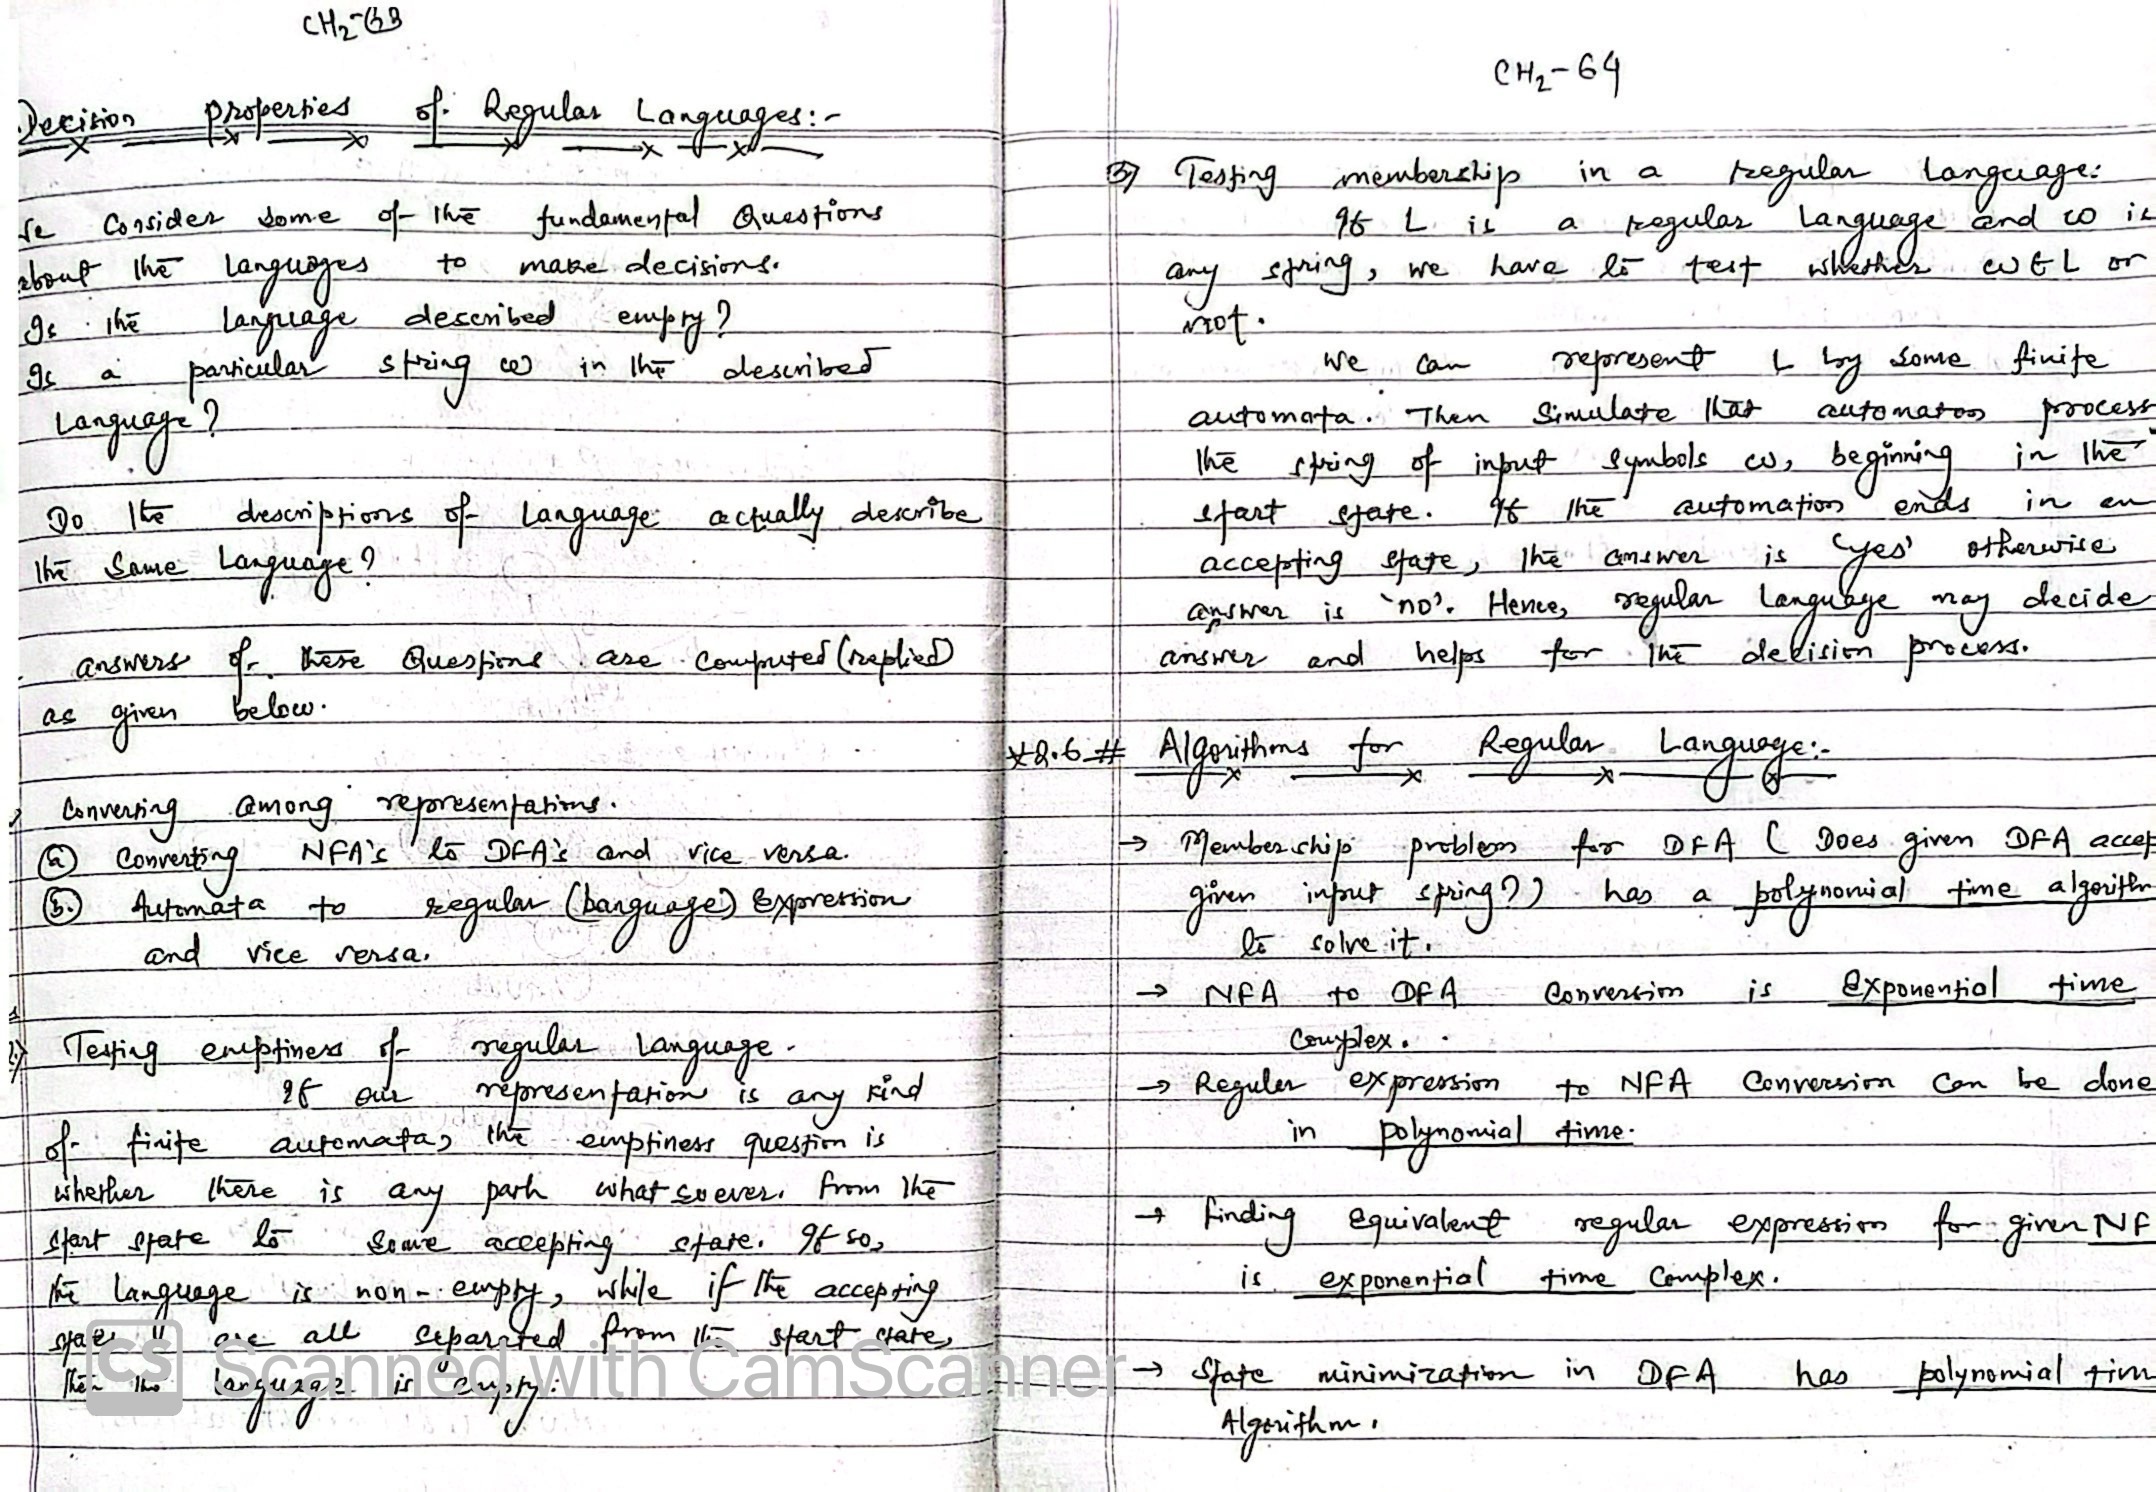 CH2-63
Decision properties of Regular Languages:-
Consider some of the fundamental Questions
about the languages to make decisions.
Is the language described empty?
Is a particular string w in the described
Language?
Do the descriptions of Language actually describe
the same Language?
answers of these Questions are computed (replied)
as given below.
Converting among representations.
(a) Converting NFA's to DFA's and vice versa.
(b.) Automata to regular (language) Expression
and vice versa.
2) Testing emptiness of regular Language.
If our representation is any kind
of finite automata, the emptiness question is
whether there is any path what so ever. from the
start state to some accepting state. If so,
the language is non-empty, while if the accepting
state are all separated from the start state,
then the language is empty.
CH2-64
3) Testing membership in a regular language:
If L is a regular language and w is
any string, we have to test whether w ∈ L or
not.
We can represent L by some finite
automata. Then Simulate that automaton process
the string of input symbols w, beginning in the
start state. If the automation ends in an
accepting state, the answer is 'yes' otherwise
answer is 'no'. Hence, regular language may decide
answer and helps for the decision process.
*2.6 # Algorithms for Regular Language:-
→ Membership problem for DFA ( Does given DFA accep
given input string?) has a polynomial time algorithm
to solve it.
→ NFA to DFA Conversion is Exponential time
Complex.
→ Regular expression to NFA Conversion can be done
in polynomial time.
→ finding equivalent regular expression for given NF
is exponential time Complex.
→ State minimization in DFA has polynomial tim
Algorithm.
CS Scanned with CamScanner